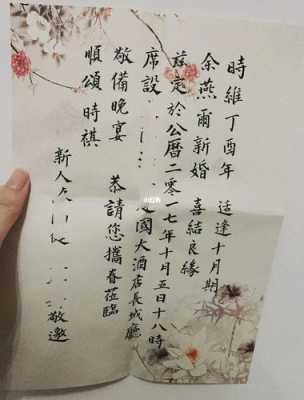 時維丁酉年 适達十月期
余燕爾新婚 喜結良緣
茲定於公曆二零一七年十月五日十八時
席設 國大酒店長城廳
敬備晚宴 恭請您攜眷蒞臨
順頌時祺
新人 敬邀
小红书